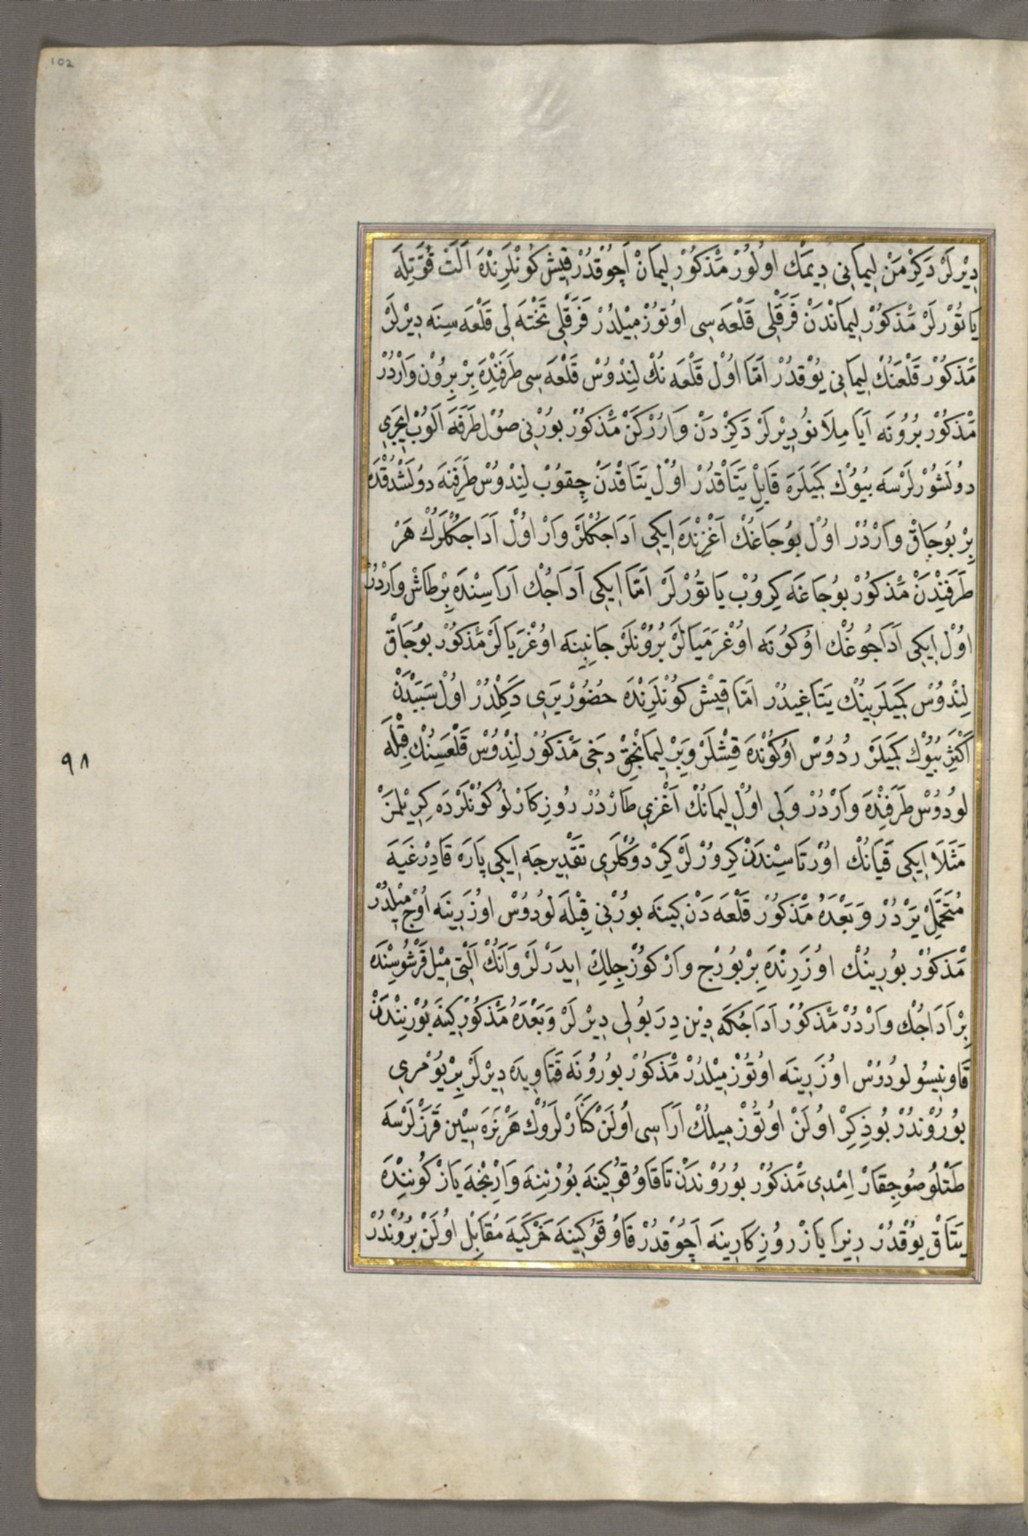 102
دِيْرلَرْ دَكِرْمَنْ لِيمَانِى دِيمَك اوُلُورْ مَذْكُورْ لِيمَانْ اَچُوقْدُرْ قِيشْ كُونْلَرِنْدَه آلَتْ قُوَّتِلَه
يَاتُورْلَرْ مَذْكُورْ لِيمَانْدَنْ فَرَقْلِى قَلْعَه سِى اوُتُوزْ مِيْلدُرْ فَرَقْلِى تَخْتَه لِى قَلْعَه سِنَه دِيْرلَرْ
مَذْكُورْ قَلْعَنُكْ لِيمَانِى يُوْقدُرْ اَمَّا اوُلْ قَلْعَه نُكْ لِنْدُوسْ قَلْعَه سِى طَرَفِنْدَه بِرْ بِرُونْ وَارْدُرْ
مَذْكُورْ بُرُونَه اَيَا مِلَانُو دِيْرلَرْ دَكِزْدَنْ وَارُرْكَنْ مَذْكُورْ بُورْنِى صُوْل طَرَفَه اَلُوبْ اِيچَرِى
دوُلَشُورْلَرْسَه بُيُوكْ كَمِيلَرَه قَابِلْ يَتَاقْدُرْ اوُلْ يَتَاقْدَنْ چِقوُبْ لِنْدُوسْ طَرَفِنَه دوُلَشْدُقْدَه
بِرْ بوُجَاقْ وَارْدُرْ اوُلْ بوُجَاغُكْ اَغْزِنْدَه اِيكِى اَدَاجُكْلَرْ وَارْ اوُلْ اَدَاجُكْلَرُكْ هَرْ
طَرَفِنْدَنْ مَذْكُورْ بوُجَاغَه كِرُوبْ يَاتُورْلَرْ اَمَّا اِيكِى اَدَاجُكْ اَرَاسِنْدَه بِرْ طَاشْ وَارْدُرْ
اوُلْ اِيكِى اَدَاجُوغُكْ اوُكُونَه اوُغْرَمَيَالَرْ بُرُونْلَرْ جَانِبِنَه اوُغْرَيَالَرْ مَذْكُورْ بوُجَاقْ
لِنْدُوسْ كَمِيلَرِينُكْ يَتَاغِيدُرْ اَمَّا قِيشْ كوُنْلَرِنْدَه حُضُورْ يَرِى دَكِلْدُرْ اوُلْ سَبَبْدَنْ
اَكْثَرْ بُيُوكْ كَمِيلَرْ رُدُوسْ اوُكُونْدَه قِشْلَرْ وَبِرْ لِيمَانْجِقْ دَخِى مَذْكُورْ لِنْدُوسْ قَلْعَسِنُكْ قِبْلَه
لوُدُوسْ طَرَفِنْدَه وَارْدُرْ وَلِى اوُلْ لِيمَانُكْ اَغْزِى طَارْدُرْ رُوزِكَارْلوُ كوُنْلَرْدَه كِرِيْلمَزْ
مَثَلَا اِيكِى قَيَانُكْ اوُرْتَاسِيْندَنْ كِرُورْلَرْ كِرْدوُكْلَرِى تَقْدِيرجَه اِيكِى پَارَه قَادِرْغَيَه
مُتَحَمِّلْ يَرْدُرْ وَبَعْدَهُ مَذْكُورْ قَلْعَه دَنْ كِينَه بوُرْنِى قِبْلَه لوُدُوسْ اوُزَرِينَه اوُچْ مِيْلدُرْ
مَذْكُورْ بوُرِينُكْ اوُزَرِنْدَه بِرْ بُورْج وَارْ كوُزْجِلِكْ اِيدَرْلَرْ وَانُكْ اَلْتِى مِيْل قَرْشوُسِنْدَه
بِرْ اَدَاجُكْ وَارْدُرْ مَذْكُورْ اَدَاجُكَه دِيْن دِرَبوُلِى دِيْرلَرْ وَبَعْدَهُ مَذْكُورْ كِينَه بوُرْنِنْدَنْ
قَاوِنِيسُو لوُدُوسْ اوُزَرِينَه اوُتُوزْ مِيْلدُرْ مَذْكُورْ بوُرُونَه قَتَاوِيَه دِيْرلَرْ بِرْ يُومْرِى
بوُرُوْندُرْ بوُ ذِكِرْ اوُلَنْ اوُتُوزْ مِيلُكْ اَرَاسِى اوُلَنْ كَنَارْلَرُوكْ هَرْنَرَه سِيْن قَزَرْلَرْسَه
طَتْلوُ صُو چِقَارْ اِمْدِى مَذْكُورْ بوُرُونْدَنْ تَا قَاوُ قوُكِينَه بوُرْنِنَه وَارِنْجَه يَازْ كوُنِنْدَه
يَتَاقْ يوُقْدُرْ زِيرَا يَازْ رُوزِكَارِينَه اَچُوقْدُرْ قَاوُ قوُكِينَه خَرْكِيَه مُقَابِلْ اوُلَنْ بُرُوْندُرْ
٩٨